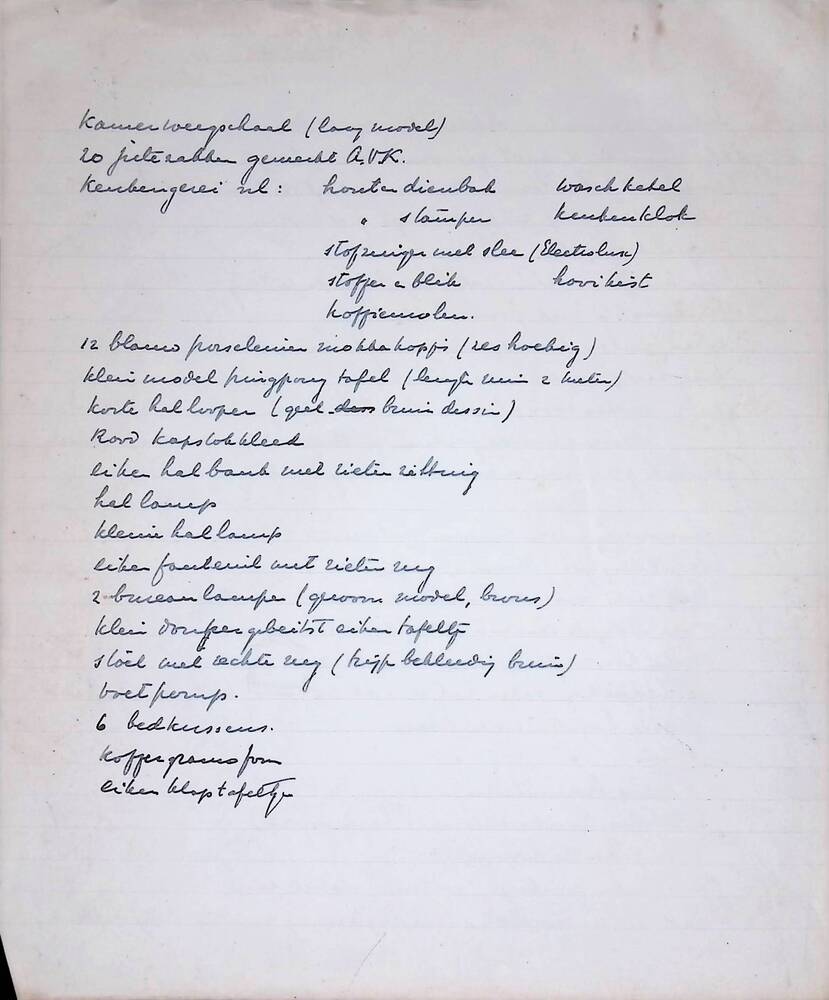 Kamerweegschaal (laag model)
20 jutezakken gemerkt A.V.K.
Keukengerei nl: houten dienbak waschketel
" stamper keukenklok
stofzuiger met slee (Electrolux)
stoffer en blik hooikist
koffiemolen.
12 blauw porseleinen mokkakopjes (zeshoekig)
klein model pingpong tafel (lengte min 2 meter)
korte halloper (geel bruin dessin)
Rood kapstokkleed
eiken halbank met rieten zitting
hal lamp
kleine hallamp
eiken fauteuil met rieten rug
2 bureaulampen (gewoon model, brons)
klein donker gebeitst eiken tafeltje
stoel met rechte rug (trijp bekleding bruin)
voetpomp.
6 bedkussens.
koffergramofoon
eiken klaptafeltje